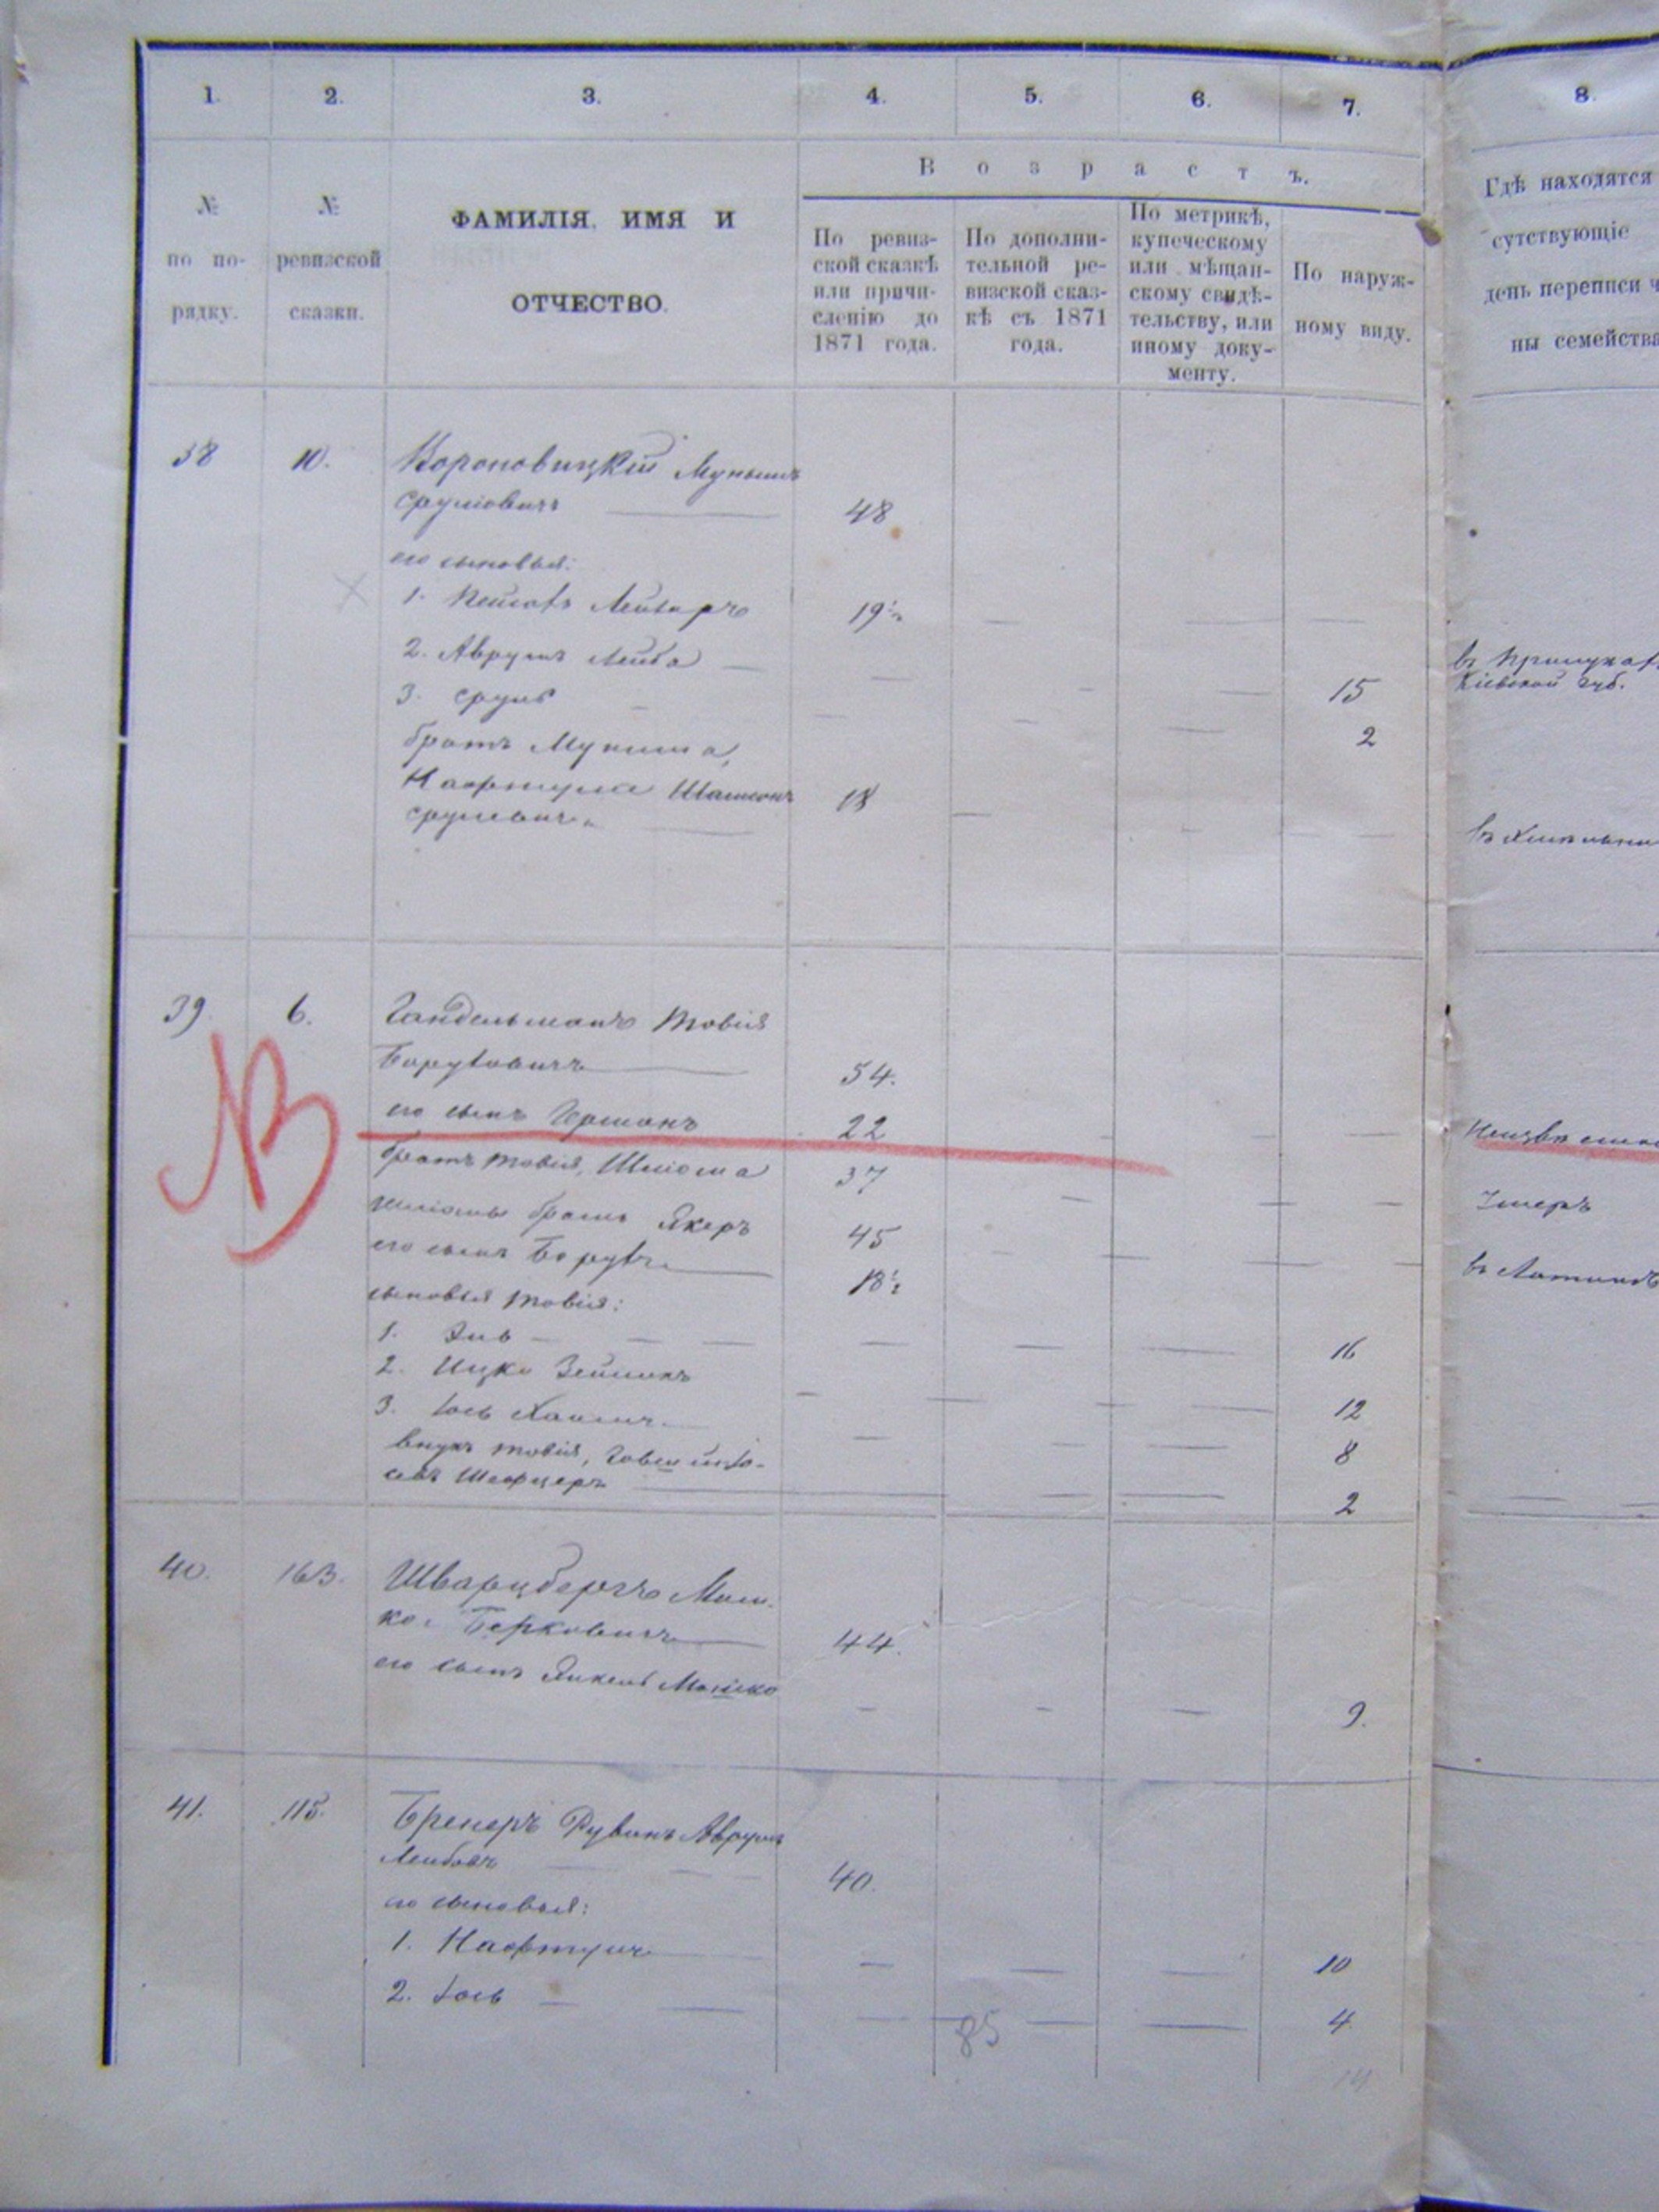 1. 2. 3. 4. 5. 6. 7. 8.
Возрастъ.
№ по по-рядку.
№ ревизской сказки.
ФАМИЛІЯ, ИМЯ И
ОТЧЕСТВО.
По ревиз-
ской сказкѣ
или причи-
сленію до
1871 года.
По дополни-
тельной ре-
визской сказ-
кѣ съ 1871
года.
По метрикѣ,
купеческому
или мѣщан-
скому свидѣ-
тельству, или
иному доку-
менту.
По наруж-
ному виду.
Гдѣ находятся
сутствующіе
день переписи ч
ны семейства
38 10. Вороновицкій
Сруловичъ 48
его сыновья:
1. 19½
2. Аврумъ Лейба 15
Кіевской губ.
3. Сруль 2
братъ Муниша,
Нафтула Шамсонъ 18
Срулевичъ
39. 6. Гандельманъ Товія
Боруховичъ 54.
NB
его сынъ Гершонъ 22
братъ Товія, Шліома 37
Умеръ
Шліомы братъ 45
его сынъ Борухъ 18½
сыновья Товія:
1. 16
2. Ицко Зейликъ 12
3. Іось Хаимъ 8
внукъ Товія,
2
40. 163. Шварцбергъ Мош-
ко Берковичъ 44.
его сынъ Янкель 9.
41. 115. Рувинъ Аврумъ
Лейбовъ 40.
его сыновья:
1. Нафтулъ 10
2. Іось 4
85